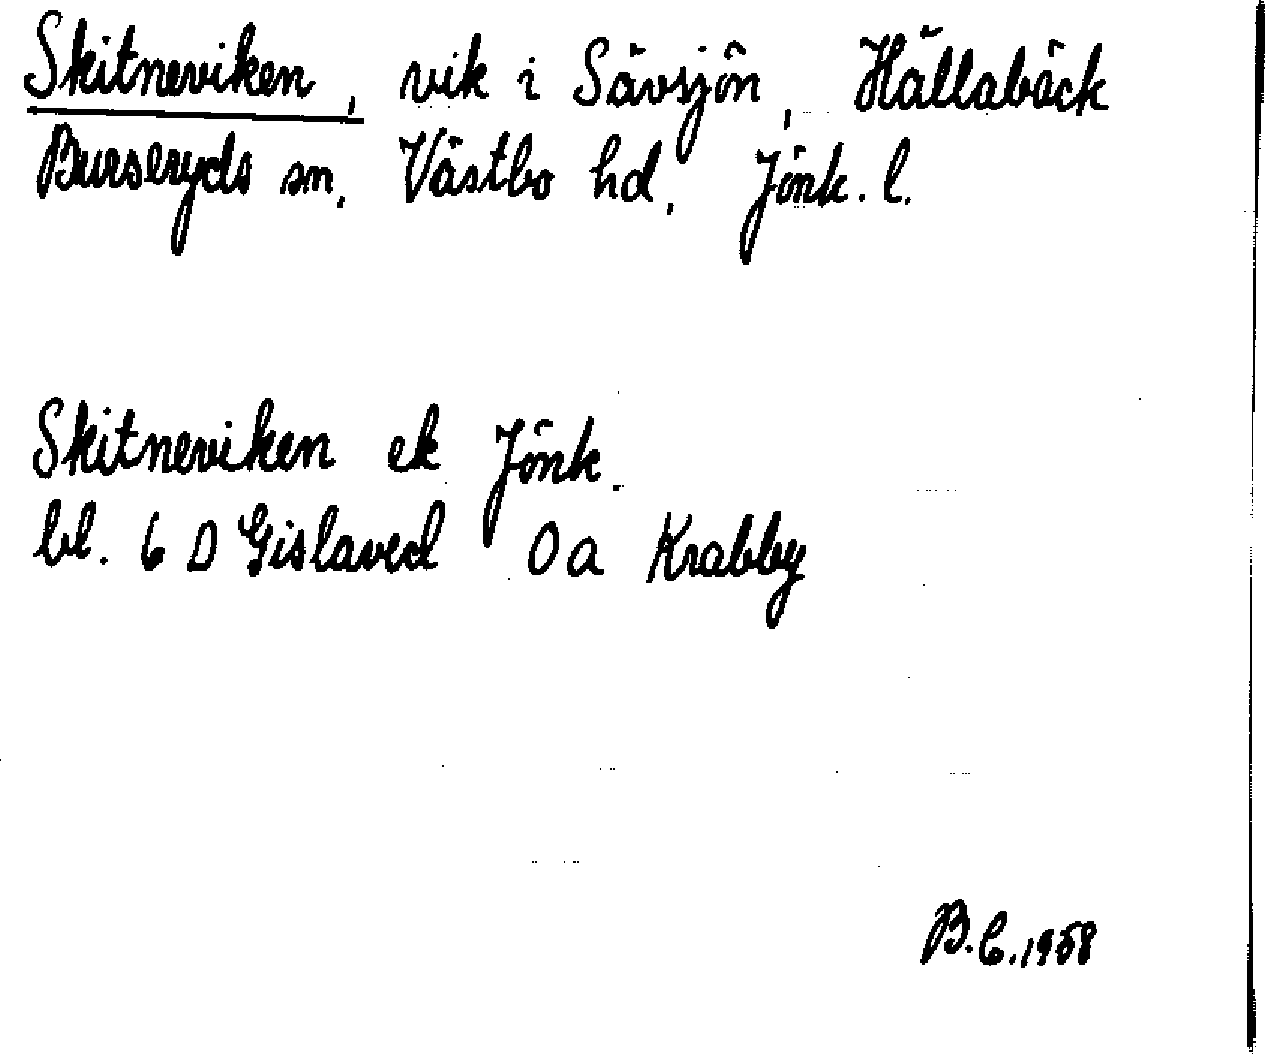 Skitneviken, vik i Sävsjön, Hällabäck
Burseryds sn, Västbo hd, Jönk. l.
Skitneviken ek Jönk.
bl. 6 D Gislaved 0 a Krabby
B.C. 1958